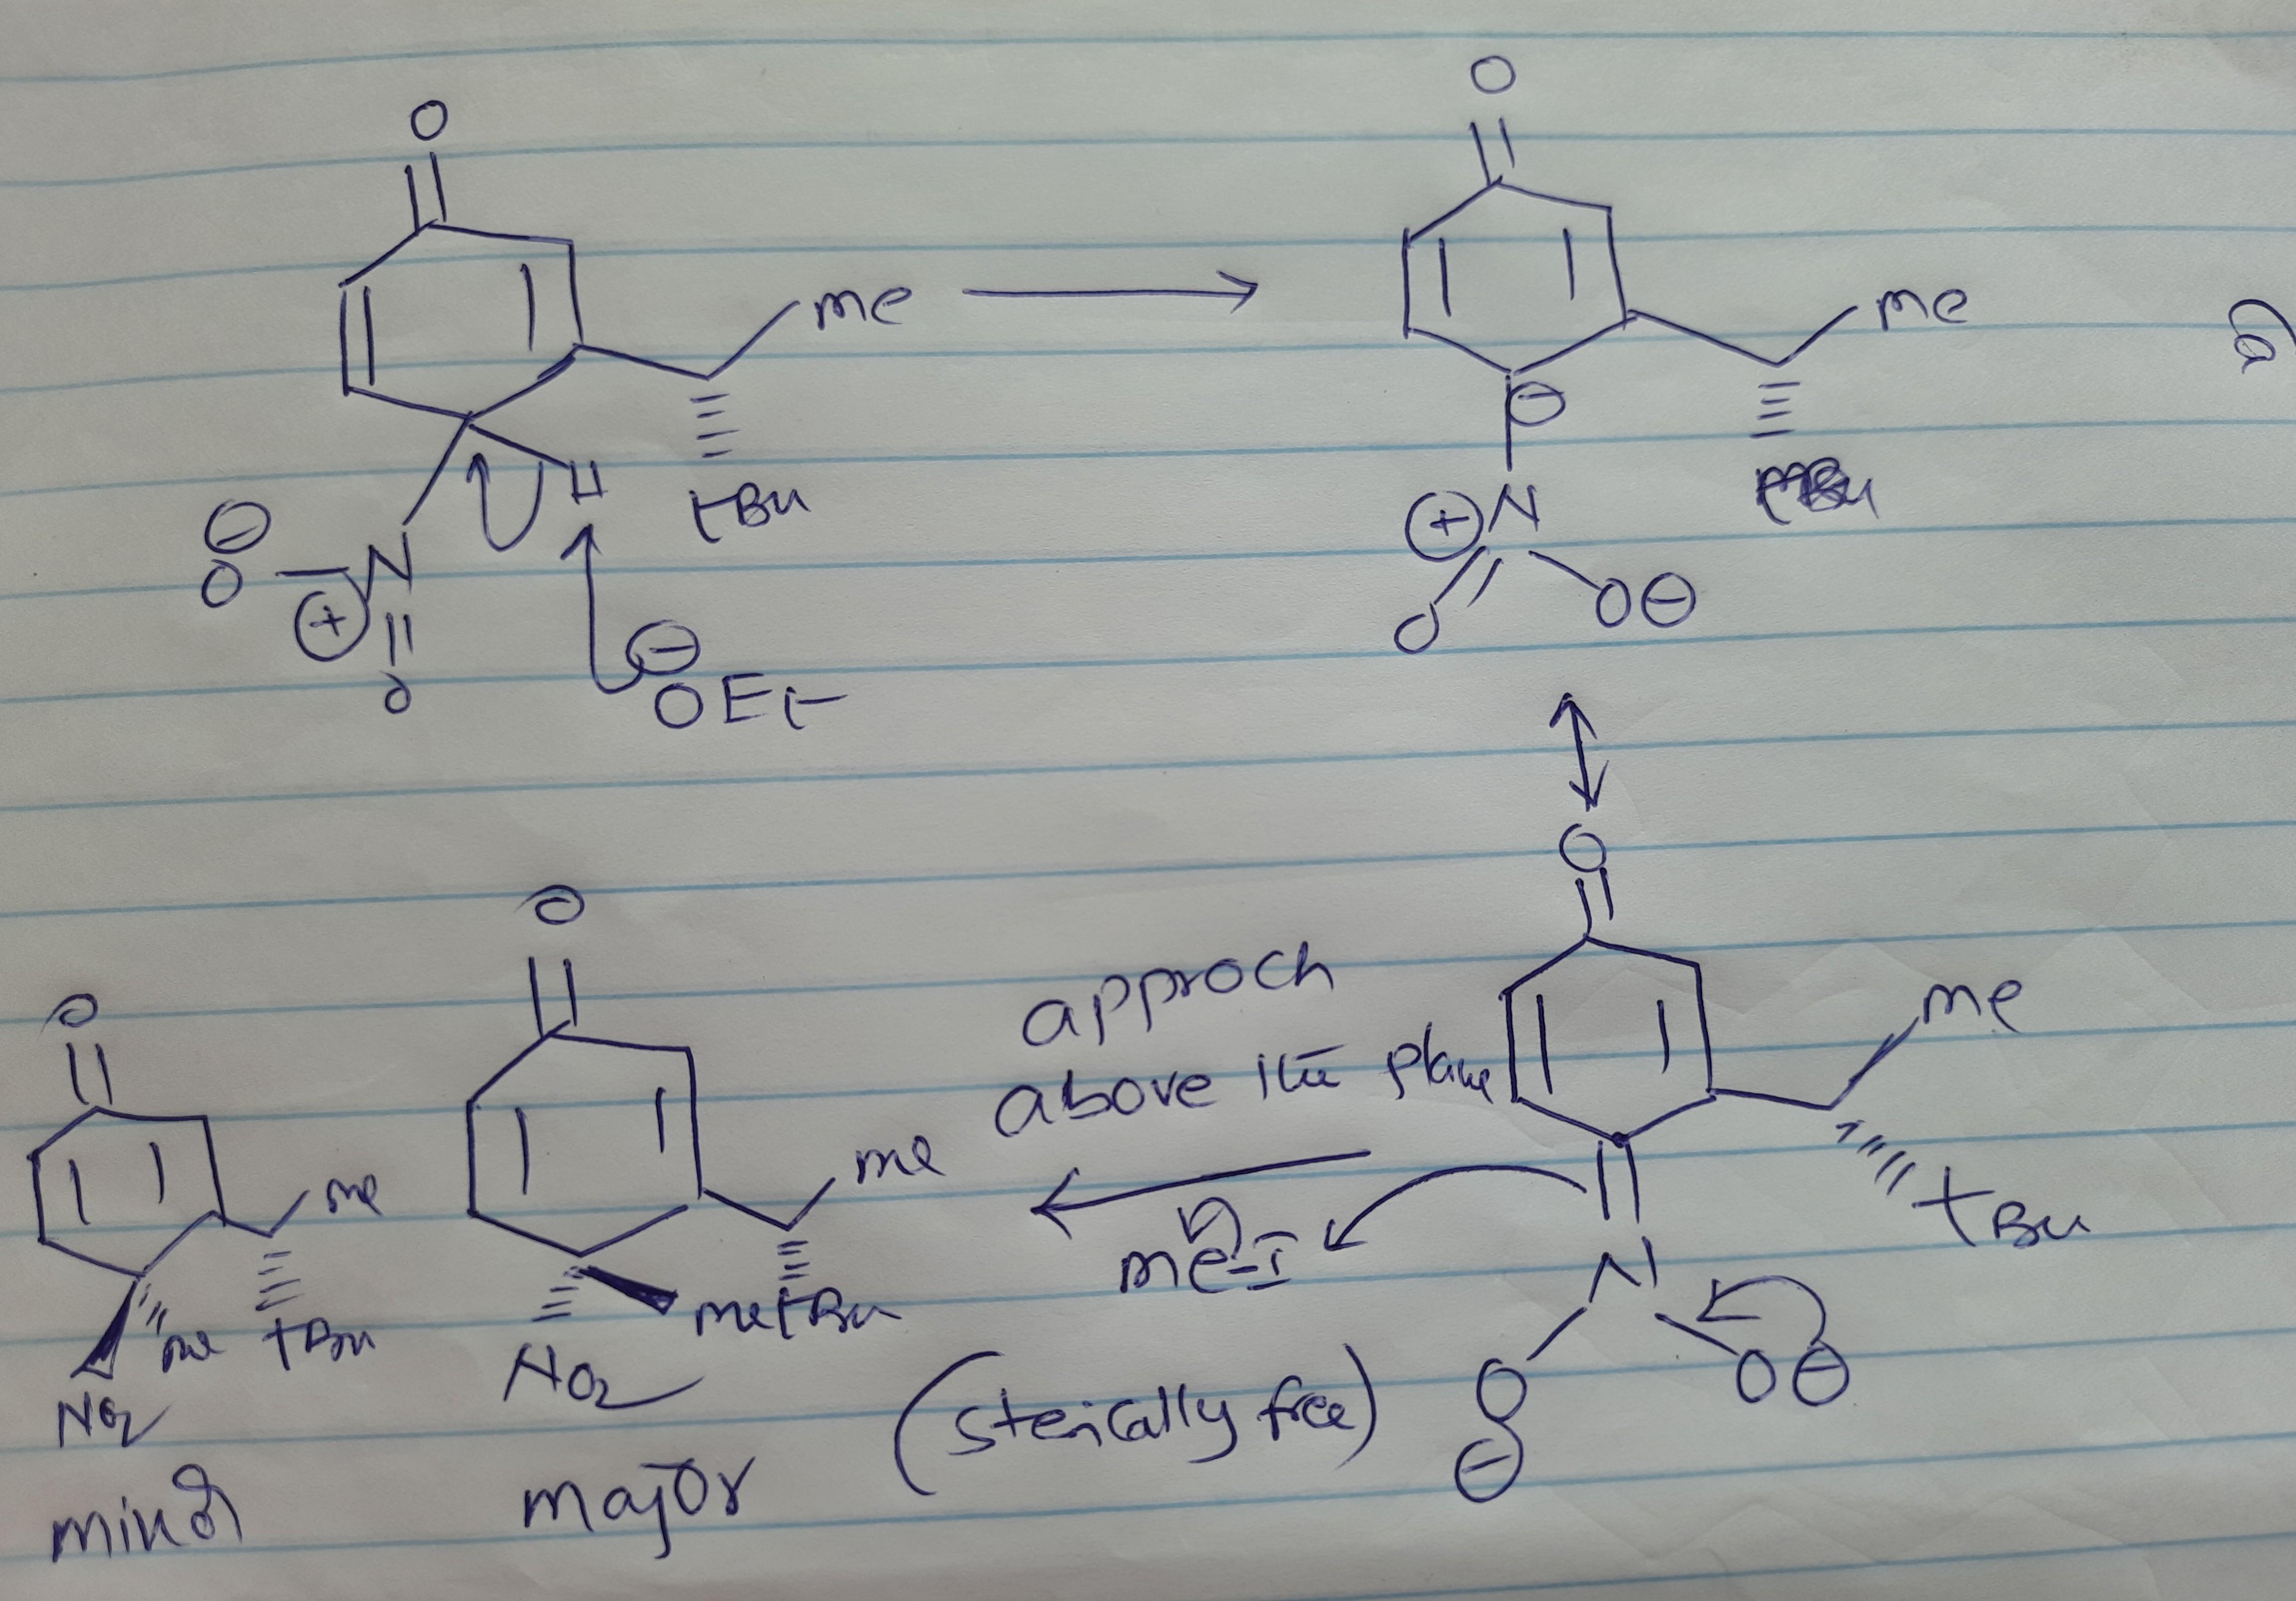 O
me
H
tBu
⊖
O
N
⊕
O
⊖
OEt
O
me
⊖
⊕ N
O
O⊖
O
me
tBu
N
O
⊖
O⊖
approch
above the plane
me-I
(sterically free)
O
me
me tBu
NO2
major
O
me
me tBu
NO2
minor